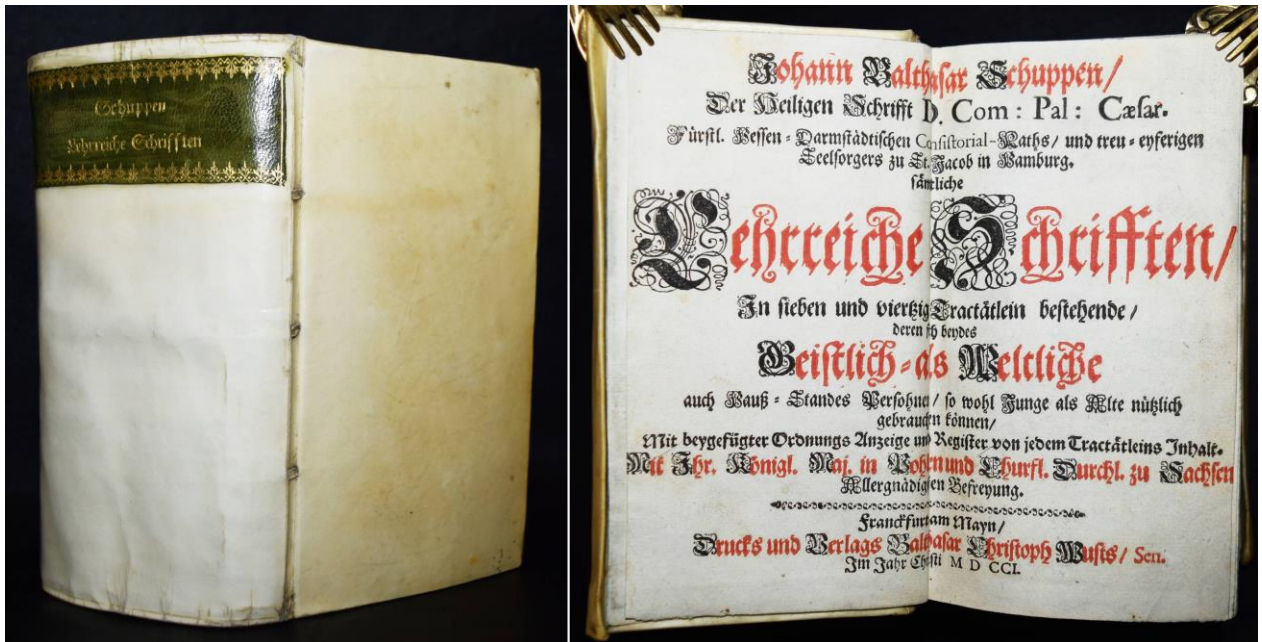 Schuppen
Lehrreiche Schrifften
Johann Balthasar Schuppen/
Der Heiligen Schrifft D. Com : Pal : Cæsar.
Fürstl. Hessen-Darmstädtischen Consistorial-Raths/ und treu-eyferigen
Seelsorgers zu St. Jacob in Hamburg.
sämtliche
Lehrreiche Schrifften/
In sieben und viertzig Tractätlein bestehende/
deren sich beydes
Geistlich-als Weltliche
auch Hauß-Standes Persohnen/ so wohl Junge als Alte nützlich
gebrauchen können/
Mit beygefügter Ordnungs Anzeige und Register von jedem Tractätleins Inhalt.
Mit Ihr. Königl. Maj. in Pohlen und Churfl. Durchl. zu Sachsen
Allergnädigsten Befreyung.
Franckfurt am Mayn/
Drucks und Verlags Balthasar Christoph Wusts/ Sen.
Im Jahr Christi M D CCI.